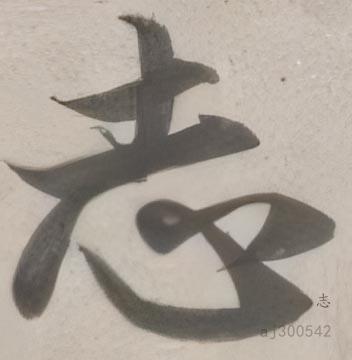 志
志
aj300542